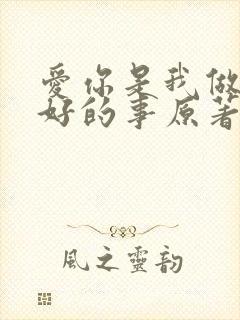 愛你是我做
好的事原著
風之靈韵